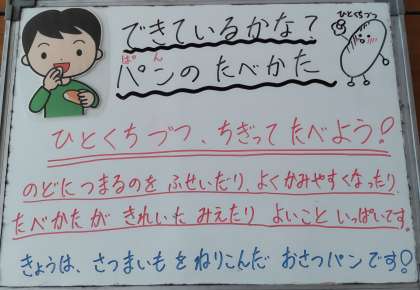 できているかな?
ひとくちづつ
パンのたべかた
ぱん
ひとくちづつ、ちぎってたべよう!
のどにつまるのをふせいだり、よくかみやすくなったり、
たべかたがきれいにみえたりよいこといっぱいです。
きょうは、さつまいもをねりこんだおさつパンです!